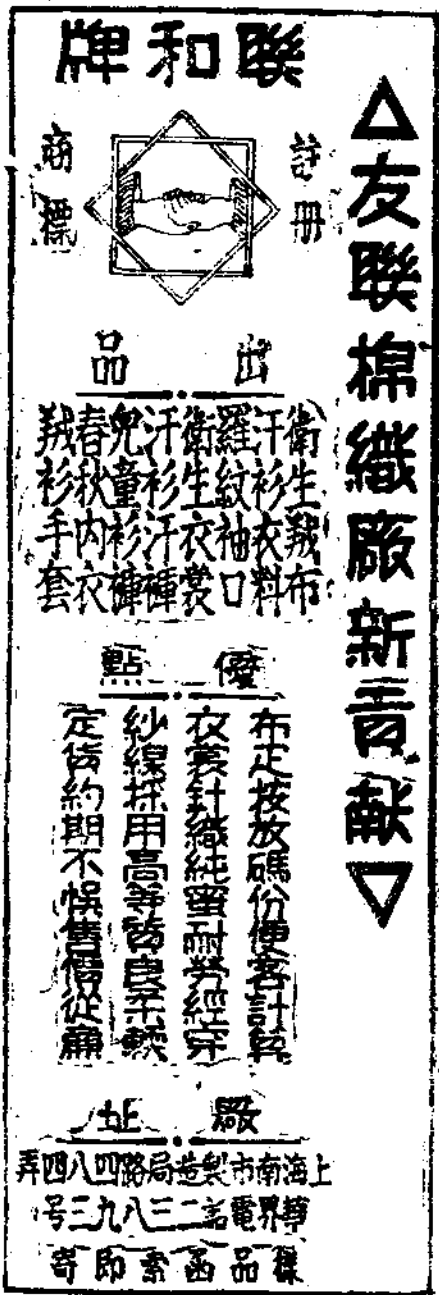 △友聯棉織廠新貢献▽
聯和牌
註冊
商標
出品
衛生羢布
汗衫衣料
羅紋袖口
衛生衣裳
汗衫汗褲
兒童衫褲
春秋内衣
羢衫手套
優點
布疋按放碼份便客計算
衣裳針織純蜜耐勞經穿
紗線採用高等皆良柔輭
定貨約期不悞售價從廉
廠址
上海南市製造局路四八四弄
華界電話二三八九三号
樣品函索即寄